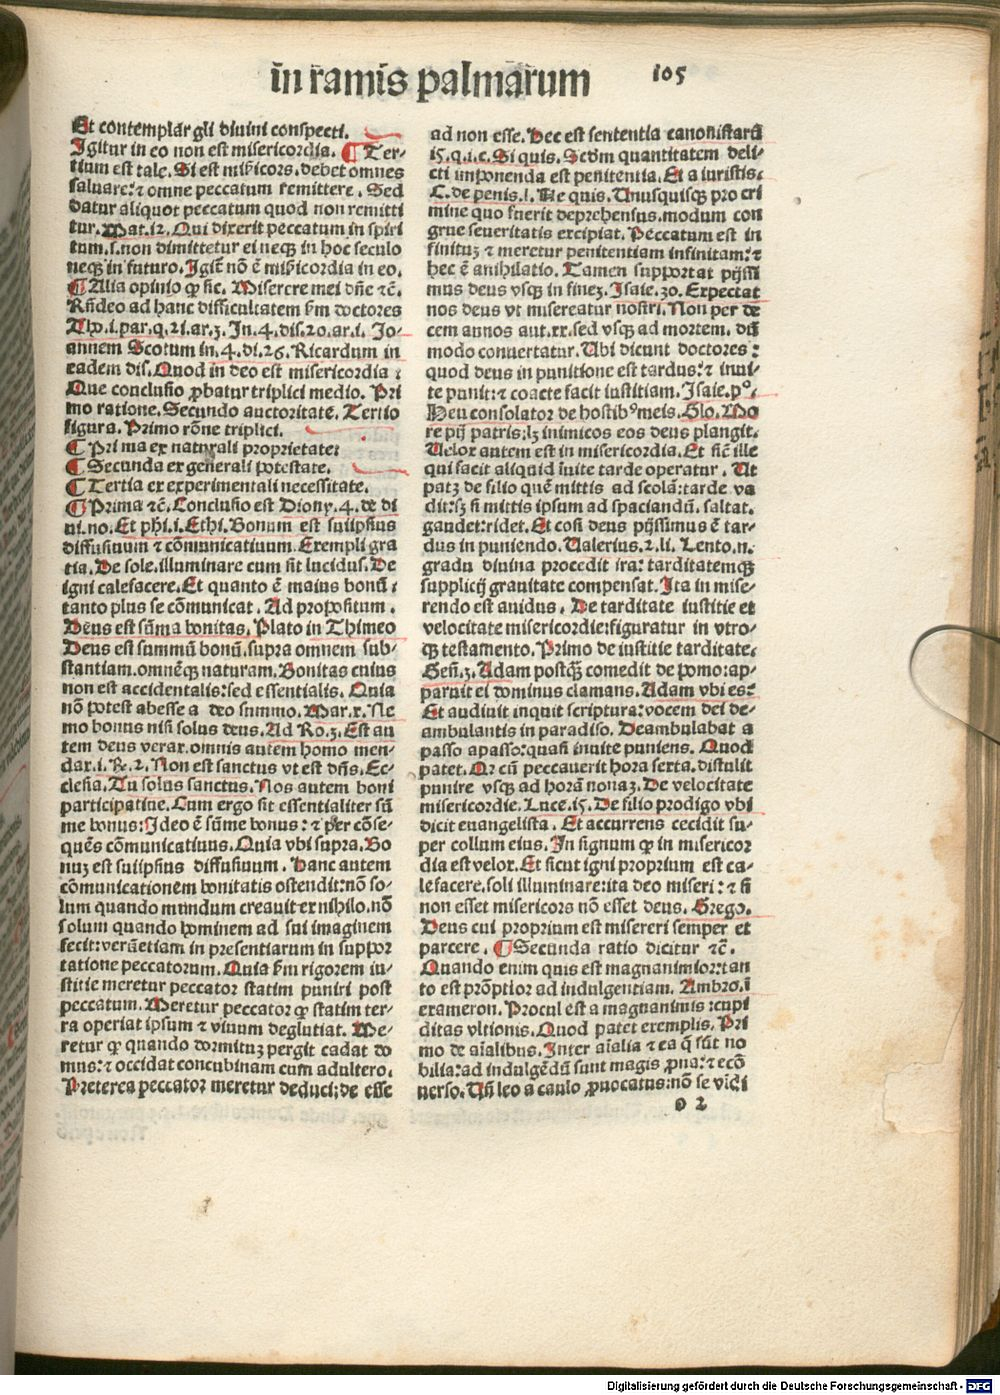 in ramis palmarum 105
Et contemplar gli divini conspecti.
Igitur in eo non est misericordia. ¶ Ter-
tium est tale. Si est mīcors. debet omnes
saluare: ⁊ omne peccatum remittere. Sed
datur aliquot peccatum quod non remitti
tur. Mat. 12. Qui dixerit peccatum in spiri
tum. s. non dimittetur ei necp in hoc seculo
necp in futuro. Igit̄ nō ē mīcordia in eo.
¶ Alia opinio ꝙ sic. Miserere mei dn̄e ⁊c̄.
Rn̄deo ad hanc difficultatem ẜm doctores
Tho. i. par. q. 21. ar. 3. In. 4. dis. 20. ar. i. Jo-
annem Scotum in. 4. di. 26. Ricardum in
eadem dis. Quod in deo est misericordia:
Que conclusio ꝓbatur triplici medio. Pri
mo ratione. Secundo auctoritate. Tertio
figura. Primo rōne triplici.
¶ Prima ex naturali proprietate:
¶ Secunda ex generali potestate.
¶ Tertia ex experimentali necessitate.
¶ Prima ⁊c̄. Conclusio est Diony. 4. de di
ui. no. Et phi. i. Ethi. Bonum est suiipsius
diffusiuum ⁊ cōmunicatiuum. Exempli gra
tia. De sole. illuminare cum sit lucidus. De
igni calefacere. Et quanto ē maius bonū:
tanto plus se cōmunicat. Ad propositum.
Deus est sūma bonitas. Plato in Thimeo
Deus est summū bonū. supra omnem sub-
stantiam. omnēqꝫ naturam. Bonitas cuius
non est accidentalis: sed essentialis. Quia
nō potest abesse a deo summo. Mar. x. Ne
mo bonus nisi solus deus. Ad Ro. 3. Est au
tem deus verax. omnis autem homo men-
dax. i. Re. 2. Non est sanctus vt est dn̄s. Ec-
clesia. Tu solus sanctus. Nos autem boni
participatiue. Cum ergo sit essentialiter sū
me bonus: Ideo ē sūme bonus: ⁊ per cōse-
quēs cōmunicatiuus. Quia vbi supra. Bo
nuꝫ est suiipsius diffusiuum. Hanc autem
cōmunicationem bonitatis ostendit: nō so-
lum quando mundum creauit ex nihilo. nō
solum quando hominem ad sui imaginem
fecit: verūetiam in presentiarum in suppor
tatione peccatorum. Quia ẜm rigorem iu-
stitie meretur peccator statim puniri post
peccatum. Meretur peccator ꝙ statim ter-
ra operiat ipsum ⁊ viuum deglutiat. Me-
retur ꝙ quando dormituꝫ pergit cadat do
mus: ⁊ occidat concubinam cum adultero.
Preterea peccator meretur deduci; de esse
ad non esse. Hec est sententia canonistarū
15. q. i. c. Si quis. Scdm quantitatem deli-
cti imponenda est penitentia. Et a iuristis.
C. de penis. l. Ne quis. Unusquisqꝫ pro cri
mine quo fuerit deprehensus. modum con
grue seueritatis excipiat. Peccatum est in
finituꝫ ⁊ meretur penitentiam infinitam: ⁊
hec ē anihilatio. Tamen supportat pijssi
mus deus vsqꝫ in fineꝫ. Isaie. 30. Expectat
nos deus vt misereatur nostri. Non per de
cem annos aut. xx. sed vsqꝫ ad mortem. dū
modo conuertatur. Ubi dicunt doctores:
quod deus in punitione est tardus: ⁊ inui-
te punit: ⁊ coacte facit iustitiam. Isaie. pº.
Heu consolator de hostibꝰ meis. Glo. Mo
re pij patris; lꝫ inimicos eos deus plangit.
Uelox autem est in misericordia. Et sic̄ ille
qui facit aliquid īuite tarde operatur. Ut
patꝫ de filio quē mittis ad scolā: tarde va
dit: sꝫ si mittis ipsum ad spaciandū. saltat.
gaudet: ridet. Et cosi deus pijssimus ē tar-
dus in puniendo. Ualerius. 2. li. Lento. n.
gradu diuina procedit ira: tarditatemqꝫ
supplicij grauitate compensat. Ita in mise-
rendo est auidus. De tarditate iustitie et
velocitate misericordie: figuratur in vtro-
qꝫ testamento. Primo de iustitie tarditate.
Gen̄. 3. Adam postqꝫ comedit de pomo: ap-
paruit ei dominus clamans. Adam vbi es:
Et audiuit inquit scriptura: vocem dei de-
ambulantis in paradiso. Deambulabat a
passo apasso: quasi inuite puniens. Quod
patet. Qr cū peccauerit hora sexta. distulit
punire vsqꝫ ad horā nonaꝫ. De velocitate
misericordie. Luce. 15. De filio prodigo vbi
dicit euangelista. Et accurrens cecidit su-
per collum eius. In signum ꝙ in misericor
dia est velox. Et sicut igni proprium est ca-
lefacere. soli illuminare: ita deo miseri: ⁊ si
non esset misericors nō esset deus. Grego.
Deus cui proprium est misereri semper et
parcere. ¶ Secunda ratio dicitur ⁊c̄.
Quando enim quis est magnanimior: tan
to est prōptior ad indulgentiam. Ambro. ī
exameron. Procul est a magnanimis: cupi
ditas vltionis. Quod patet exemplis. Pri
mo de aīalibus. Inter aīalia ⁊ ea q̄ sūt no
bilia: ad indulgēdū sunt magis ꝓna: ⁊ ecō
uerso. Un̄ leo a caulo ꝓuocatus: nō se vidi
o 2
Digitalisierung gefördert durch die Deutsche Forschungsgemeinschaft - DFG